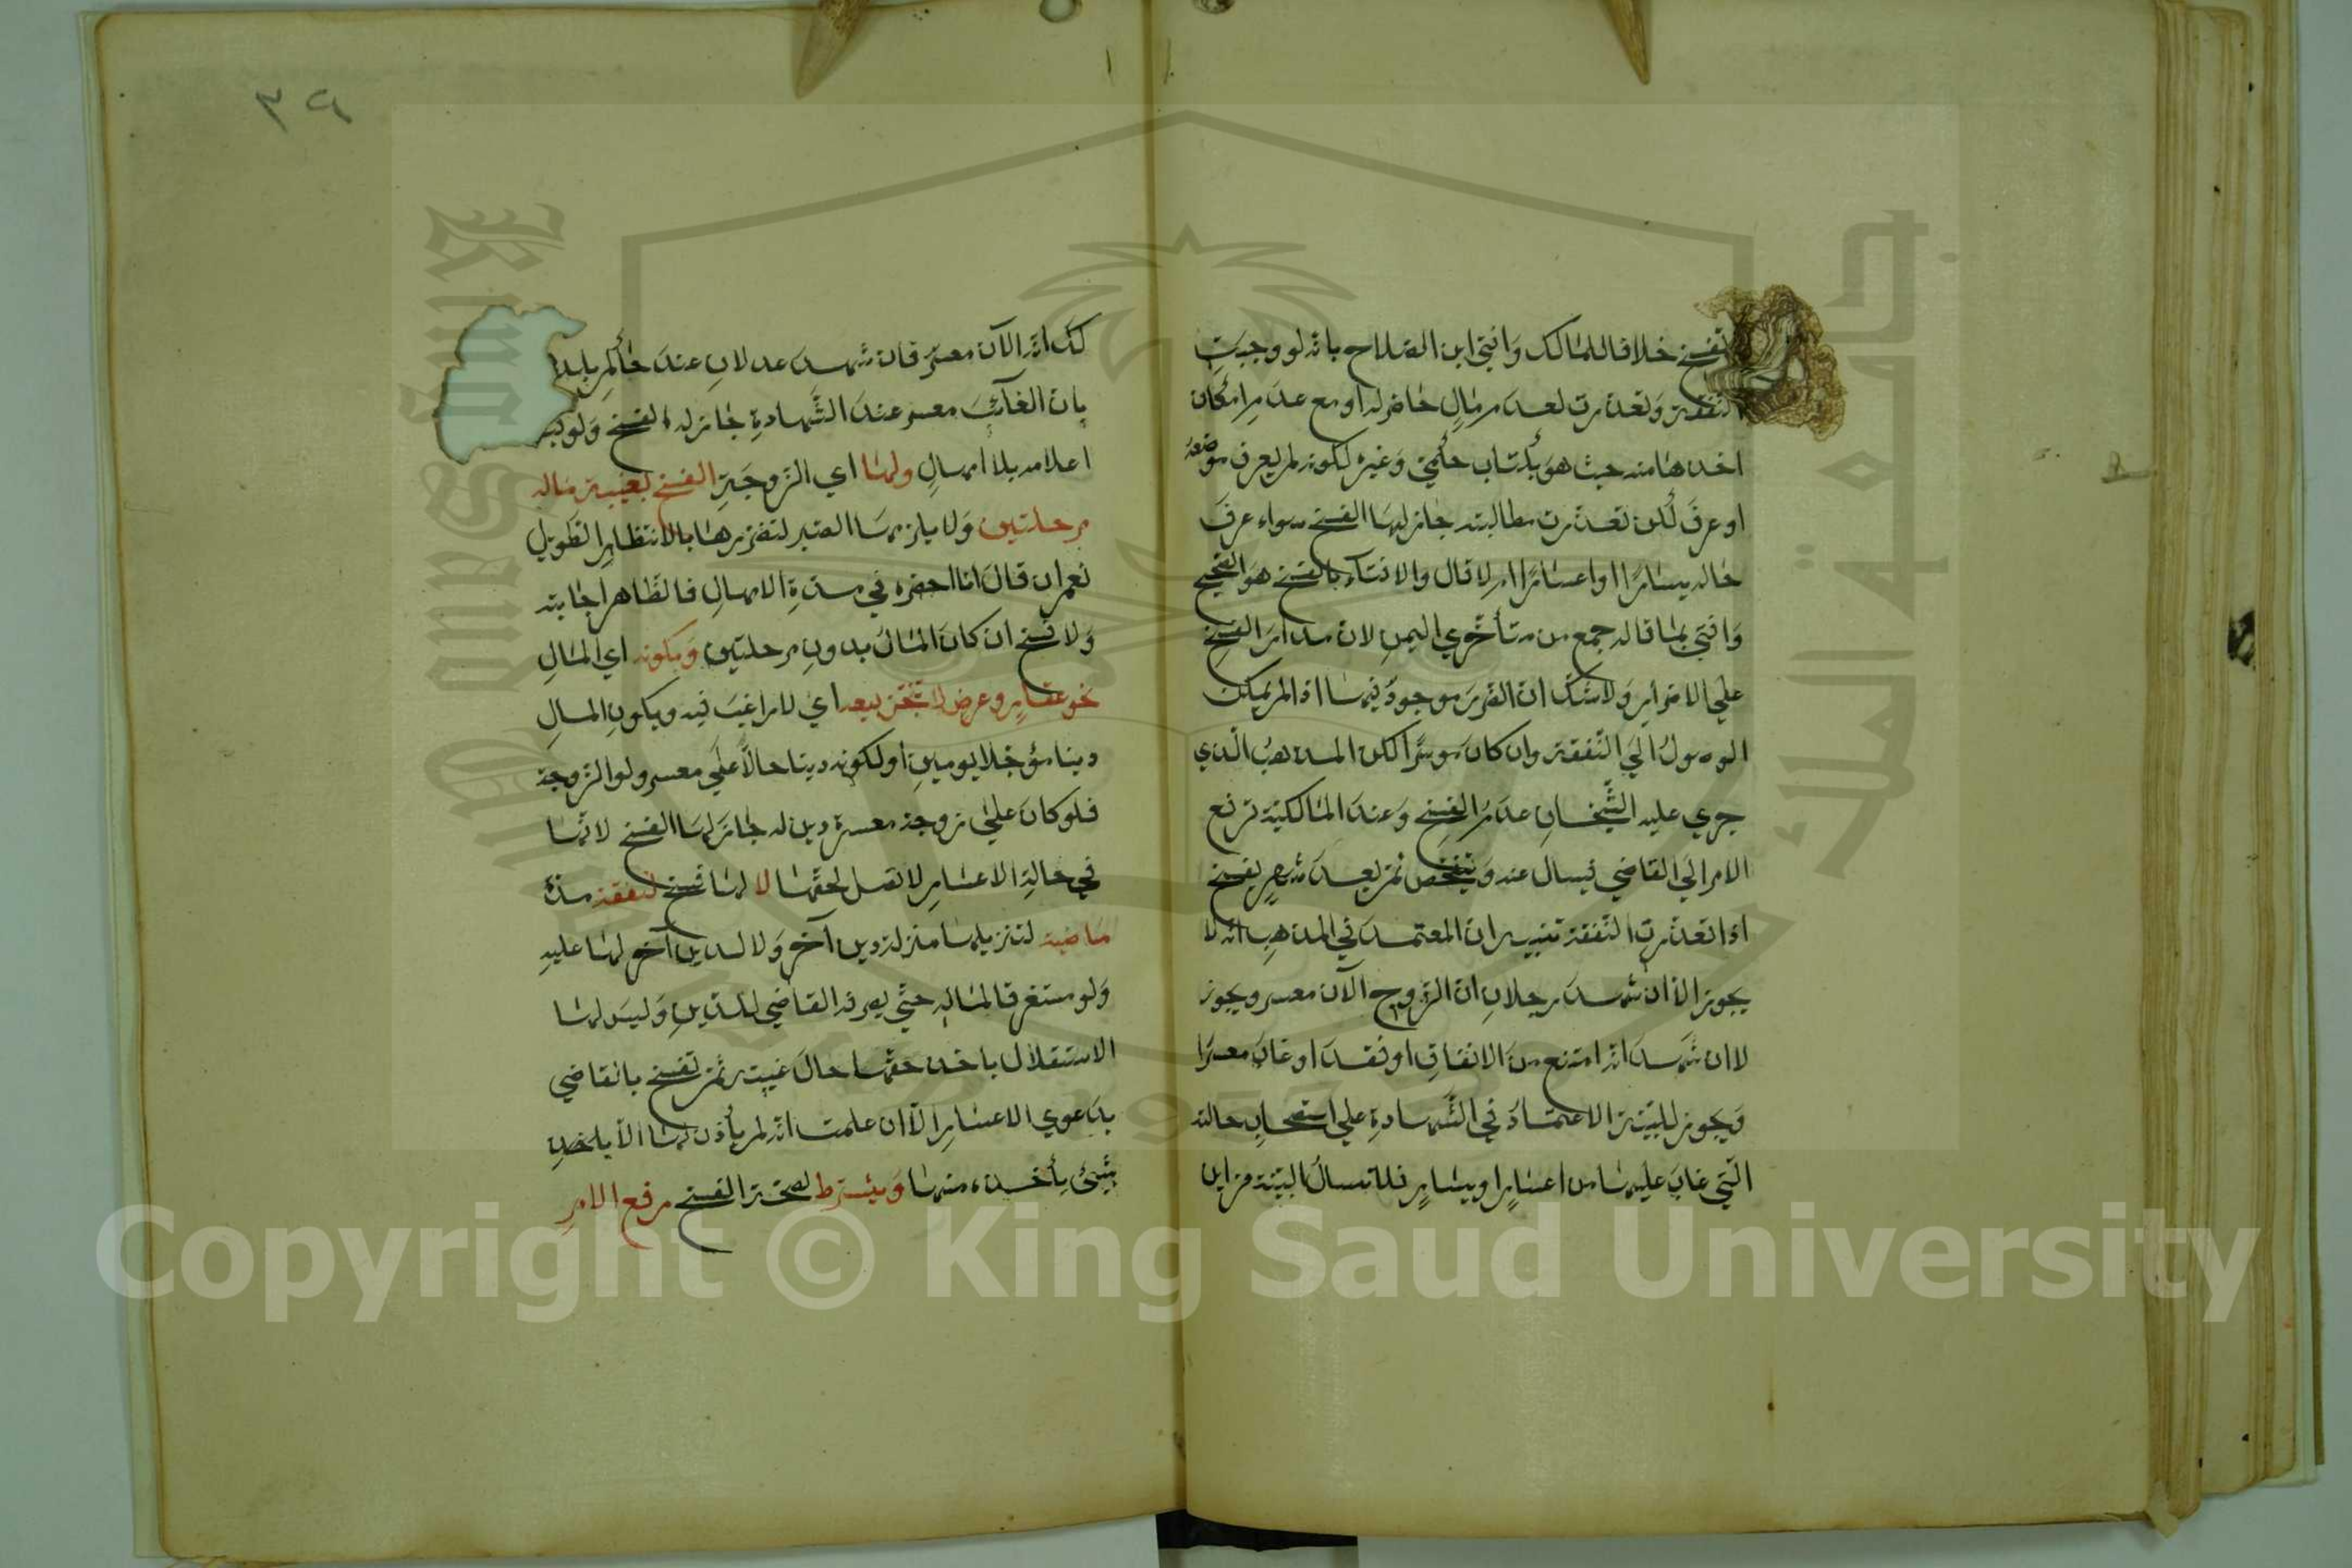 تفسخ خلافا لمالك وَافتي ابن الصلاح بانه لو وجبَتِ
النفقة وَتعذرت لعدمِ مالٍ حاضر له او مع عدمِ امكان
اخذها منه حيث هوَ بكتاب حكمي وَغيره لكونه لم يعرف موضعه
او عرفَ لكن تعذرت مطالبته جاز لها الفسخ سواء عرفَ
حاله يسارًا او اعسارًا ام لا قال والافتاء بالفسخ هوَ الصحيح
وَافتي بما قاله جمع من متأخري اليمن لان مدارَ الفسخ
علي الاضرارِ وَلا شكَّ ان الضررَ موجودٌ فيها اذا لم يمكن
الوصولُ اليَ النّفقة وان كانَ موسرًا لكن المذهبُ الّذي
جري عليه الشّيخانِ عدمُ الفسخ وَعندَ المالكية ترفع
الامر الي القاضي فيسال عنه وَيتفحّص ثم بعدَ شهرٍ يفسخ
اذا تعذرت النّفقة تنبيه ان المعتمد في المذهبِ انه لا
يجوز الا ان شهدَ رجلانِ انّ الزّوج الآن معسر ويجوز
لا ان شهدَ انه امتنع منَ الانفاقِ او فقدَ او غابَ معسرًا
وَيجوز للبيّنة الاعتمادُ في الشّهادةِ علي استصحابِ حالته
الّتي غابَ عليها من اعسارٍ او يسارٍ فلا تسالُ البيّنة من اين
لك انه الآن معسر فان شهدَ عدلانِ عندَ حاكم بلد
بان الغآئبَ معسر عندَ الشّهادةِ جاز له الفسخ وَلو قبل
اعلامه بلا امهالٍ ولها اي الزّوجَة الفسخ بغيبة ماله
مرحلتين وَلا يلزمها الصبر لتضررها بالانتظارِ الطّويل
نعم ان قالَ انا احضره في مدةِ الامهالِ فالظّاهر اجابته
وَلا فسخ ان كانَ المالُ بدونِ مرحلتين وَبكونه اي المالِ
نحو عقارٍ وعرض لا يتيسّر بيعه اي لا راغبَ فيه وبكونِ المالِ
دينا مؤجّلا يومينِ او لكونه دينا حالاً علي معسر ولو الزّوجة
فلو كانَ علي زوجة معسرة دين له جازَ لها الفسخ لانّها
في حالةِ الاعسارِ لا تصل لحقّها لا لها فسخ لنفقة مدّة
ماضية لتنزيلها منزلة دينٍ آخر وَلا لدين آخر لها عليه
وَلو مستغرقا لماله حتّي يصرفه القاضي للدّينِ وَليسَ لها
الاستقلال باخذ حقّها حالَ غيبته ثم تفسخ بالقاضي
بدَعوي الاعسارِ الاّ ان علمت انه لم يأذن لها الاّ باخذ
شيئ يأخذه منها وَيشترط لصحّة الفسخ رفع الامرِ
٣٩